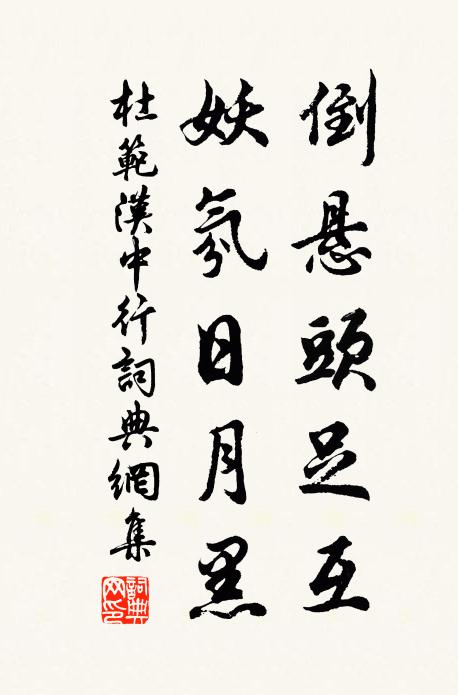 倒悬頭足互
妖氛日月黑
杜範漢中行詞典網集
詞典網印